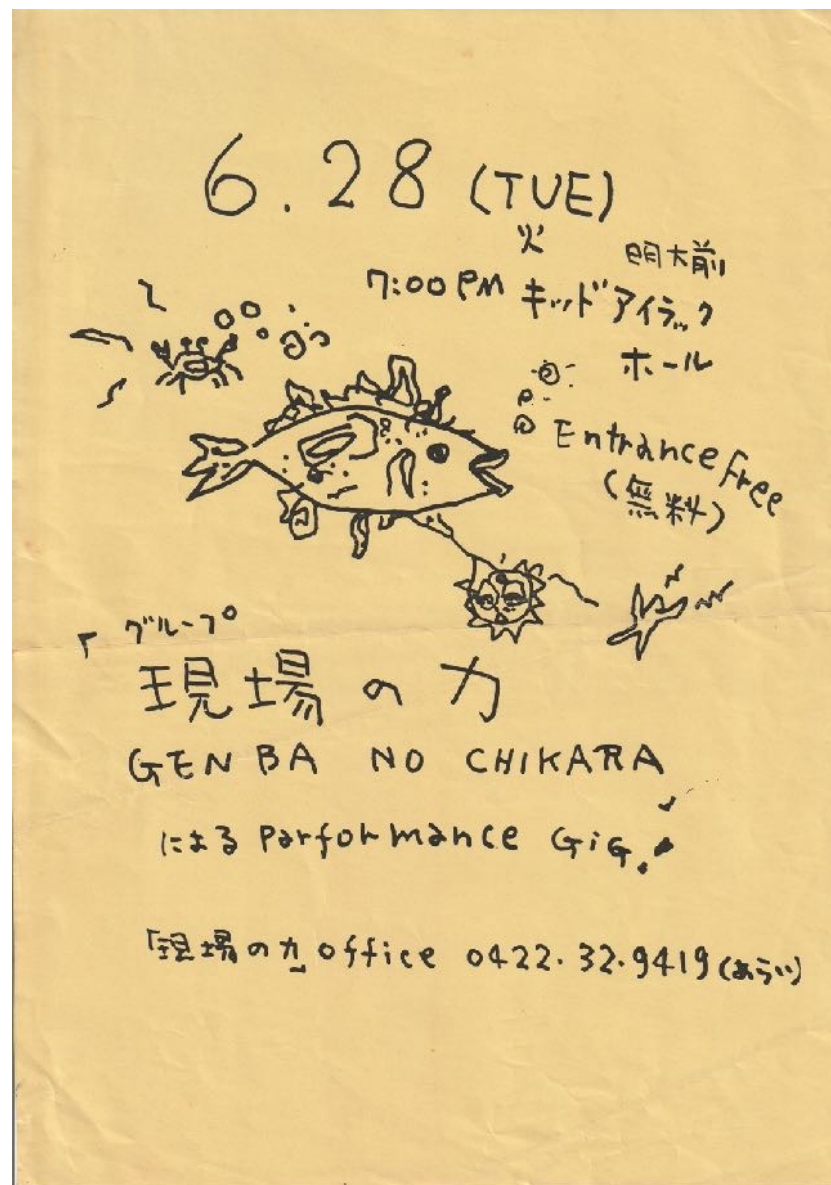 6.28 (TUE)
火
明大前
7:00 PM キッドアイラック
ホール
Entrance free
(無料)
「グループ
現場の力
GENBA NO CHIKARA
による Parformance GiG!
「現場の力」office 0422.32.9419 (あらい)